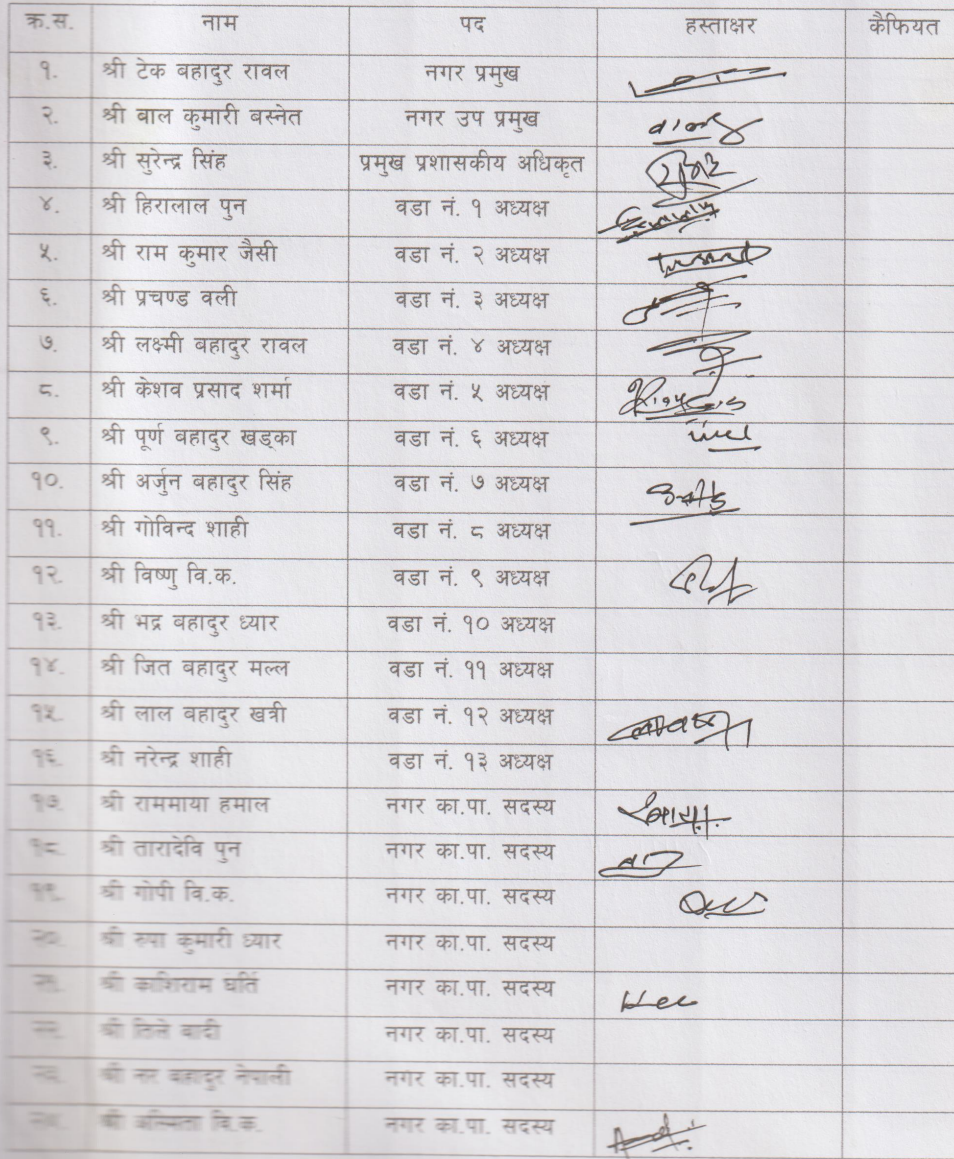 क्र.स. नाम पद हस्ताक्षर कैफियत
१. श्री टेक बहादुर रावल नगर प्रमुख
२. श्री बाल कुमारी बस्नेत नगर उप प्रमुख
३. श्री सुरेन्द्र सिंह प्रमुख प्रशासकीय अधिकृत
४. श्री हिरालाल पुन वडा नं. १ अध्यक्ष
५. श्री राम कुमार जैसी वडा नं. २ अध्यक्ष
६. श्री प्रचण्ड वली वडा नं. ३ अध्यक्ष
७. श्री लक्ष्मी बहादुर रावल वडा नं. ४ अध्यक्ष
८. श्री केशव प्रसाद शर्मा वडा नं. ५ अध्यक्ष
९. श्री पूर्ण बहादुर खड्का वडा नं. ६ अध्यक्ष
१०. श्री अर्जुन बहादुर सिंह वडा नं. ७ अध्यक्ष
११. श्री गोविन्द शाही वडा नं. ८ अध्यक्ष
१२. श्री विष्णु वि.क. वडा नं. ९ अध्यक्ष
१३. श्री भद्र बहादुर ध्यार वडा नं. १० अध्यक्ष
१४. श्री जित बहादुर मल्ल वडा नं. ११ अध्यक्ष
१५. श्री लाल बहादुर खत्री वडा नं. १२ अध्यक्ष
१६. श्री नरेन्द्र शाही वडा नं. १३ अध्यक्ष
१७. श्री राममाया हमाल नगर का.पा. सदस्य
१८. श्री तारादेवि पुन नगर का.पा. सदस्य
१९. श्री गोपी वि.क. नगर का.पा. सदस्य
२०. श्री रुपा कुमारी ध्यार नगर का.पा. सदस्य
२१. श्री काशिराम घर्ति नगर का.पा. सदस्य
२२. श्री तिले बादी नगर का.पा. सदस्य
२३. श्री नर बहादुर नेपाली नगर का.पा. सदस्य
२४. श्री वि.क. नगर का.पा. सदस्य